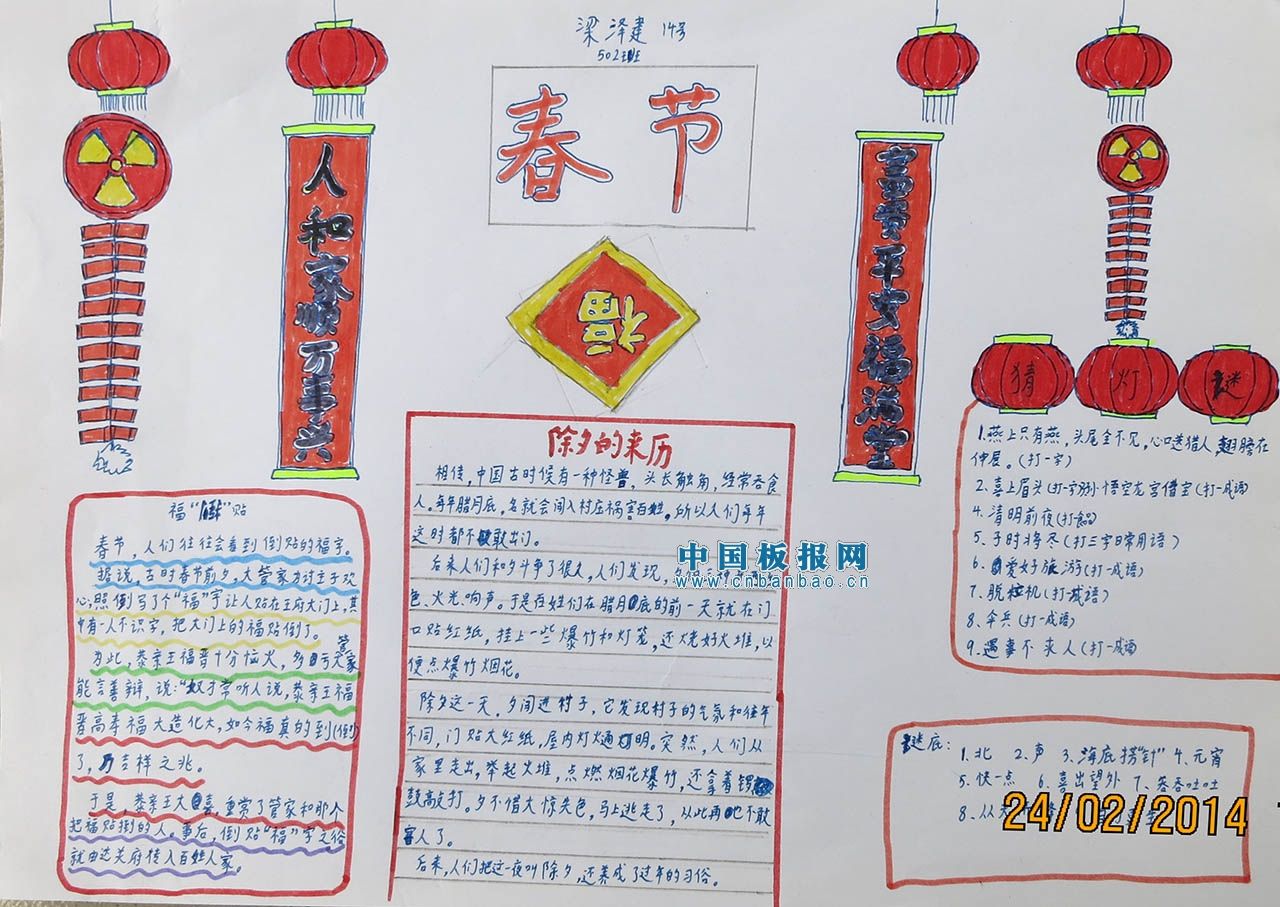 梁泽建 14号
502班
春 节
人和家顺万事兴
富贵平安福满堂
福
福“倒”贴
春节，人们往往会看到倒贴的福字。
据说，古时春节前夕，大管家为讨主子欢
心，照例写了个“福”字让人贴在王府大门上，其
中有一人不识字，把大门上的福贴倒了。
为此，恭亲王福晋十分恼火，多亏大管家
能言善辩，说：“奴才常听人说，恭亲王福
晋高寿福大造化大，如今福真的到（倒）
了，乃吉祥之兆。
于是，恭亲王大喜，重赏了管家和那个
把福贴倒的人。事后，倒贴“福”字之俗
就由达关府传入百姓人家。
除夕的来历
相传，中国古时候有一种怪兽，头长触角，经常吞食
人。每年腊月底，名就会闯入村庄祸害百姓，所以人们每年
这时都不敢出门。
后来人们和夕斗争了很久，人们发现，夕
色、火光、响声。于是百姓们在腊月底的前一天就在门
口贴红纸，挂上一些爆竹和灯笼，还烧好火堆，以
便点爆竹烟花。
除夕这一天，夕闯进村子，它发现村子的气氛和往年
不同，门贴大红纸，屋内灯火通明。突然，人们从
家里走出，举起火堆，点燃烟花爆竹，还拿着锣
鼓高敲打。夕不借大惊失色，马上逃走了，从此再也不敢
害人了。
后来，人们把这一夜叫除夕，还养成了过年的习俗。
中国板报网
www.cnbanbao.cn
猜 灯 谜
1.燕上只有燕，头尾全不见，心口送猎人，翅膀在
伸展。（打一字）
2.喜上眉头（打一字）3.悟空龙宫借宝（打一成语）
4.清明前夜（打一食品）
5.子时将尽（打三字日常用语）
6.爱好旅游（打一成语）
7.脱粒机（打一成语）
8.伞兵（打一成语）
9.遇事不求人（打一成语）
谜底：
1.北 2.声 3.海底捞“针” 4.元宵
5.快一点 6.喜出望外 7.吞吞吐吐
8.从天
24/02/2014